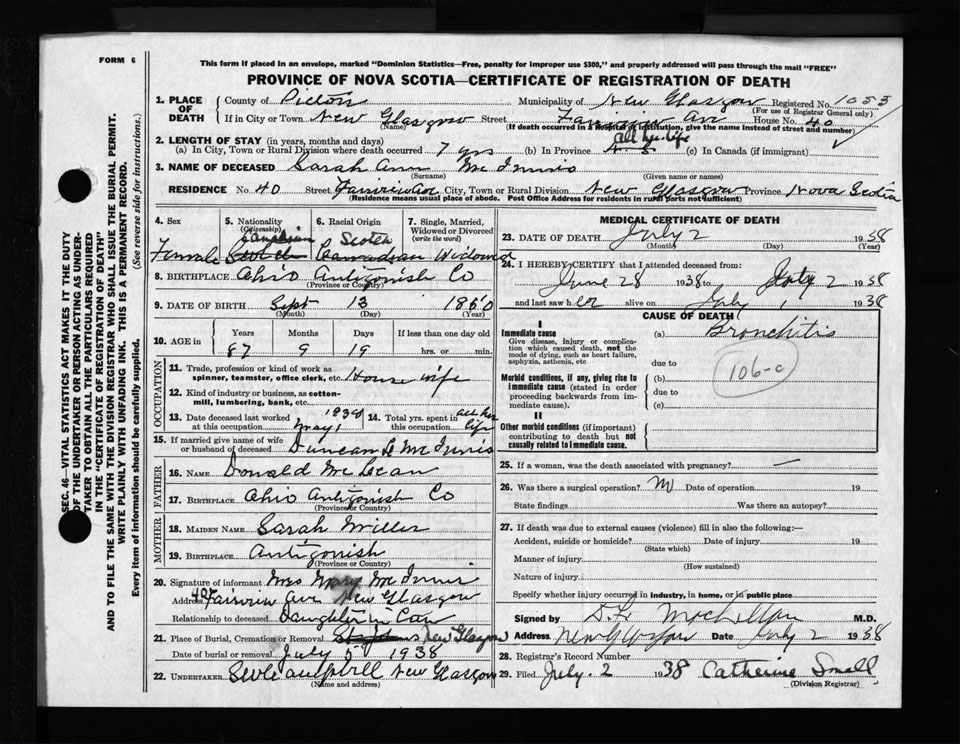 FORM 6
This form if placed in an envelope, marked "Dominion Statistics—Free, penalty for improper use $300," and properly addressed will pass through the mail "FREE"
PROVINCE OF NOVA SCOTIA—CERTIFICATE OF REGISTRATION OF DEATH
1. PLACE OF DEATH
County of Pictou Municipality of New Glasgow Registered No. 1055
(For use of Registrar General only)
If in City or Town New Glasgow Street Fairview Av House No. 40
(Name) (If death occurred in a hospital or institution, give the name instead of street and number)
2. LENGTH OF STAY (in years, months and days) all her life
(a) In City, Town or Rural Division where death occurred 7 yrs (b) In Province (c) In Canada (if immigrant)
3. NAME OF DECEASED Sarah Ann Mc Innis
(Surname) (Given name or names)
RESIDENCE No. 40 Street Fairview Av City, Town or Rural Division New Glasgow Province Nova Scotia
(Residence means usual place of abode. Post Office Address for residents in rural parts not sufficient)
4. Sex 5. Nationality (Citizenship) 6. Racial Origin 7. Single, Married, Widowed or Divorced (write the word)
Canadian Scotch
Female Canadian Widowed
8. BIRTHPLACE Ohio Antigonish Co
(Province or Country)
9. DATE OF BIRTH Sept 13 1850
(Month) (Day) (Year)
10. AGE in Years Months Days If less than one day old
87 9 19 hrs. or min.
OCCUPATION
11. Trade, profession or kind of work as spinner, teamster, office clerk, etc. House wife
12. Kind of industry or business, as cotton-mill, lumbering, bank, etc.
13. Date deceased last worked at this occupation May 1 1938 14. Total yrs. spent in this occupation all her life
15. If married give name of wife or husband of deceased Duncan Mc Innis
FATHER
16. NAME Donald Mc Lean
17. BIRTHPLACE Ohio Antigonish Co
(Province or Country)
MOTHER
18. MAIDEN NAME Sarah Miller
19. BIRTHPLACE Antigonish
(Province or Country)
20. Signature of informant Mrs Mary Mc Innis
Address 40 Fairview Ave New Glasgow
Relationship to deceased Daughter in Law
21. Place of Burial, Cremation or Removal New Glasgow
Date of burial or removal July 5 1938
22. UNDERTAKER New Glasgow
(Name and address)
MEDICAL CERTIFICATE OF DEATH
23. DATE OF DEATH July 2 1938
(Month) (Day) (Year)
24. I HEREBY CERTIFY that I attended deceased from:
June 28 1938 to July 2 1938
and last saw her alive on July 1 1938
CAUSE OF DEATH
I
Immediate cause
Give disease, injury or complication which caused death, not the mode of dying, such as heart failure, asphyxia, asthenia, etc
(a) Bronchitis
due to
106-c
Morbid conditions, if any, giving rise to immediate cause (stated in order proceeding backwards from immediate cause).
(b)
due to
(c)
II
Other morbid conditions (if important) contributing to death but not causally related to immediate cause.
25. If a woman, was the death associated with pregnancy? —
26. Was there a surgical operation? No Date of operation 19
State findings Was there an autopsy?
27. If death was due to external causes (violence) fill in also the following:—
Accident, suicide or homicide? Date of injury 19
(State which)
Manner of injury
(How sustained)
Nature of injury
Specify whether injury occurred in industry, in home, or in public place
Signed by M.D.
Address New Glasgow Date July 2 1938
28. Registrar's Record Number
29. Filed July. 2 1938 Catherine Small
(Division Registrar)
SEC. 46—VITAL STATISTICS ACT MAKES IT THE DUTY
OF THE UNDERTAKER OR PERSON ACTING AS UNDER-
TAKER TO OBTAIN ALL THE PARTICULARS REQUIRED
IN THE "CERTIFICATE OF REGISTRATION OF DEATH"
AND TO FILE THE SAME WITH THE DIVISION REGISTRAR WHO SHALL ISSUE THE BURIAL PERMIT.
WRITE PLAINLY WITH UNFADING INK. THIS IS A PERMANENT RECORD.
Every item of information should be carefully supplied. (See reverse side for instructions.)